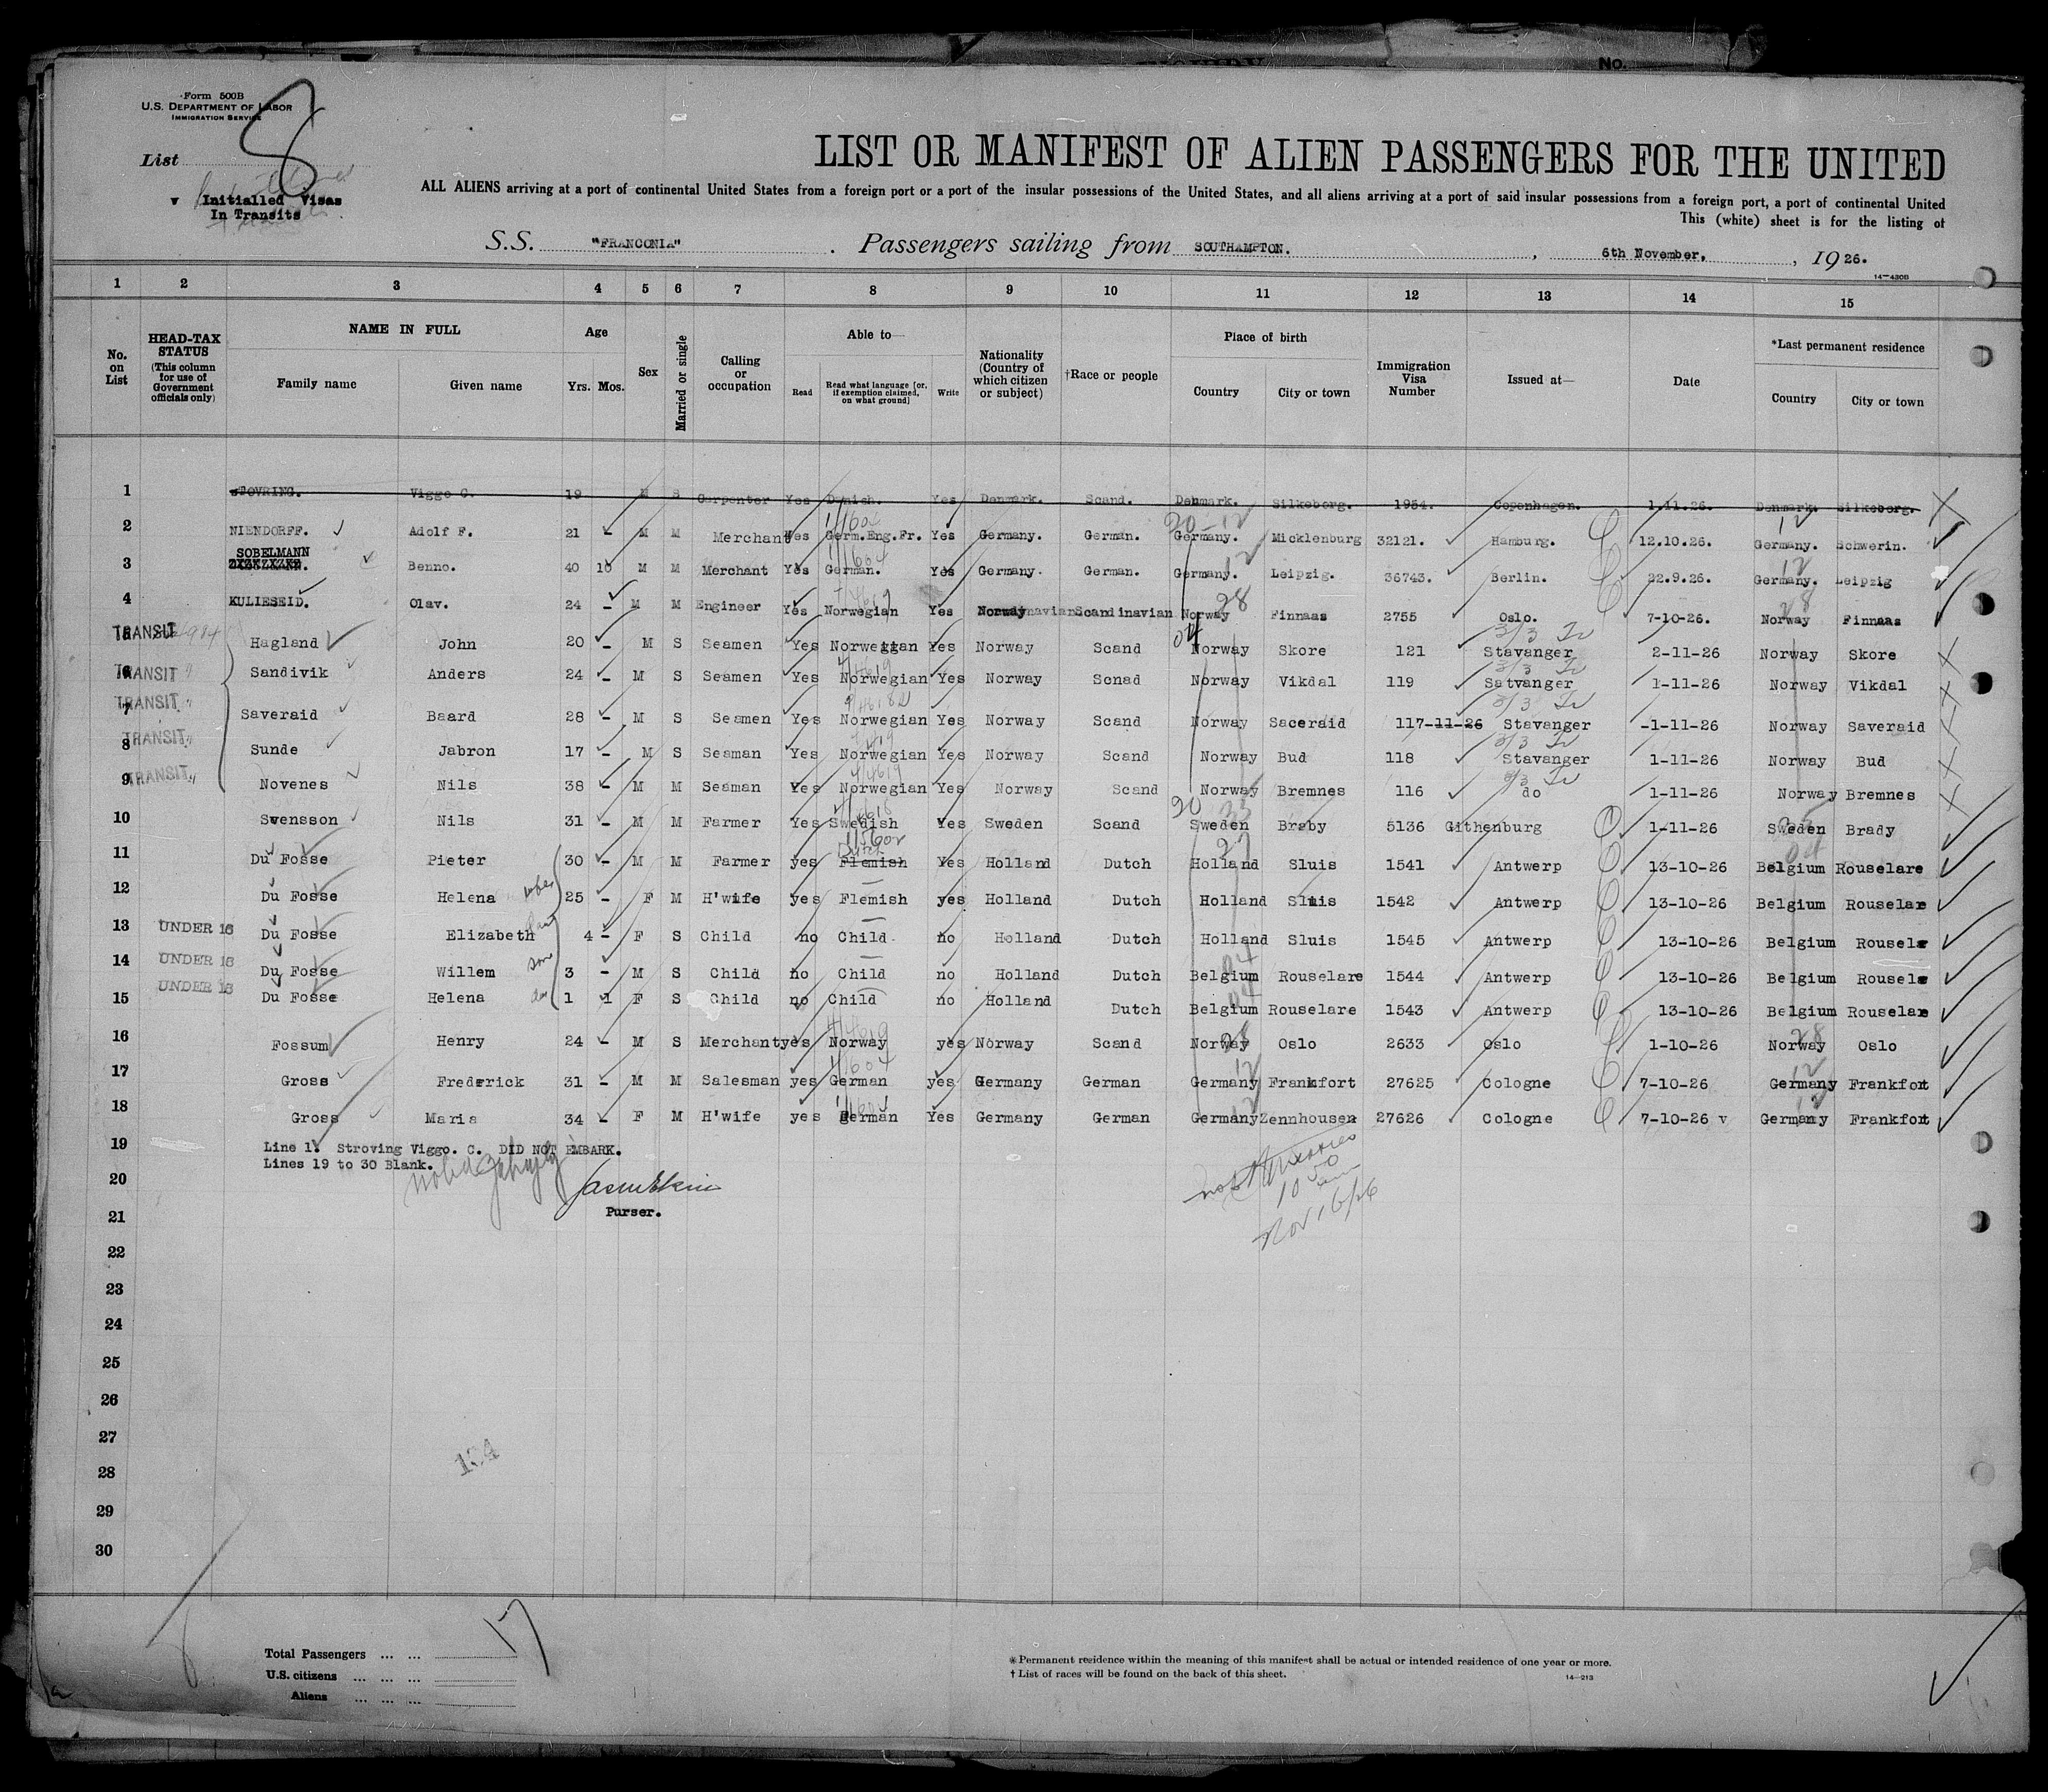 No.
Form 500B
U.S. DEPARTMENT OF LABOR
IMMIGRATION SERVICE
List 8
v Initialled Visas
In Transits
LIST OR MANIFEST OF ALIEN PASSENGERS FOR THE UNITED
ALL ALIENS arriving at a port of continental United States from a foreign port or a port of the insular possessions of the United States, and all aliens arriving at a port of said insular possessions from a foreign port, a port of continental United
This (white) sheet is for the listing of
S.S. "FRANCONIA" . Passengers sailing from SOUTHAMPTON. , 6th November, , 1926.
14-430B
1 2 3 4 5 6 7 8 9 10 11 12 13 14 15
No. on List HEAD-TAX STATUS (This column for use of Government officials only) NAME IN FULL Family name Given name Age Yrs. Mos. Sex Married or single Calling or occupation Able to— Read Read what language [or, if exemption claimed, on what ground] Write Nationality (Country of which citizen or subject) †Race or people Place of birth Country City or town Immigration Visa Number Issued at— Date *Last permanent residence Country City or town
1 STOVRING. Viggo C. 19 M S Carpenter Yes Danish. Yes Denmark. Scand. Denmark. Silkeborg. 1954. Copenhagen. 1.11.26. Denmark. Silkeborg.
2 NIENDORFF. Adolf F. 21 - M M Merchant Yes Germ.Eng.Fr. Yes Germany. German. Germany. Micklenburg 32121. Hamburg. 12.10.26. Germany. Schwerin.
3 SOBELMANN Benno. 40 10 M M Merchant Yes German. Yes Germany. German. Germany. Leipzig. 36743. Berlin. 22.9.26. Germany. Leipzig
4 KULIESEID. Olav. 24 - M M Engineer Yes Norwegian Yes Norway Scandinavian Norway Finnaas 2755 Oslo. 7-10-26. Norway Finnaas
TRANSIT Hagland John 20 - M S Seamen Yes Norweggan Yes Norway Scand Norway Skore 121 Stavanger 2-11-26 Norway Skore
6 TRANSIT Sandivik Anders 24 - M S Seamen Yes Norwegian Yes Norway Scnad Norway Vikdal 119 Satvanger 1-11-26 Norway Vikdal
7 TRANSIT Saveraid Baard 28 - M S Seamen Yes Norwegian Yes Norway Scand Norway Saceraid 117-11-26 Stavanger -1-11-26 Norway Saveraid
8 TRANSIT Sunde Jabron 17 - M S Seaman Yes Norwegian Yes Norway Scand Norway Bud 118 Stavanger 1-11-26 Norway Bud
9 TRANSIT Novenes Nils 38 - M M Seaman Yes Norwegian Yes Norway Scand Norway Bremnes 116 do 1-11-26 Norway Bremnes
10 Svensson Nils 31 - M M Farmer Yes Swedish Yes Sweden Scand Sweden Braby 5136 Githenburg 1-11-26 Sweden Brady
11 Du Fosse Pieter 30 - M M Farmer yes Flemish Dutch Yes Holland Dutch Holland Sluis 1541 Antwerp 13-10-26 Belgium Rouselare
12 Du Fosse Helena 25 - F M H'wife yes Flemish yes Holland Dutch Holland Sluis 1542 Antwerp 13-10-26 Belgium Rouselare
13 UNDER 16 Du Fosse Elizabeth 4 - F S Child no Child no Holland Dutch Holland Sluis 1545 Antwerp 13-10-26 Belgium Rousele
14 UNDER 16 Du Fosse Willem son 3 - M S Child no Child no Holland Dutch Belgium Rouselare 1544 Antwerp 13-10-26 Belgium Rousele
15 UNDER 16 Du Fosse Helena 1 1 F S Child no Child no Holland Dutch Belgium Rouselare 1543 Antwerp 13-10-26 Belgium Rouselare
16 Fossum Henry 24 - M S Merchant yes Norway yes Norway Scand Norway Oslo 2633 Oslo 1-10-26 Norway Oslo
17 Gross Frederick 31 - M M Salesman yes German yes Germany German Germany Frankfort 27625 Cologne 7-10-26 Germany Frankfort
18 Gross Maria 34 - F M H'wife yes German Yes Germany German Germany Zennhousen 27626 Cologne 7-10-26 v Germany Frankfort
19 Line 1. Stroving Viggo. C. DID NOT EMBARK.
Lines 19 to 30 Blank.
20
Purser.
Nov 16/26
21
22
23
24
25
26
27
28
29
30
Total Passengers ... ... 17
U.S. citizens ... ... ...
Aliens ... ... ...
* Permanent residence within the meaning of this manifest shall be actual or intended residence of one year or more.
† List of races will be found on the back of this sheet.
14-213